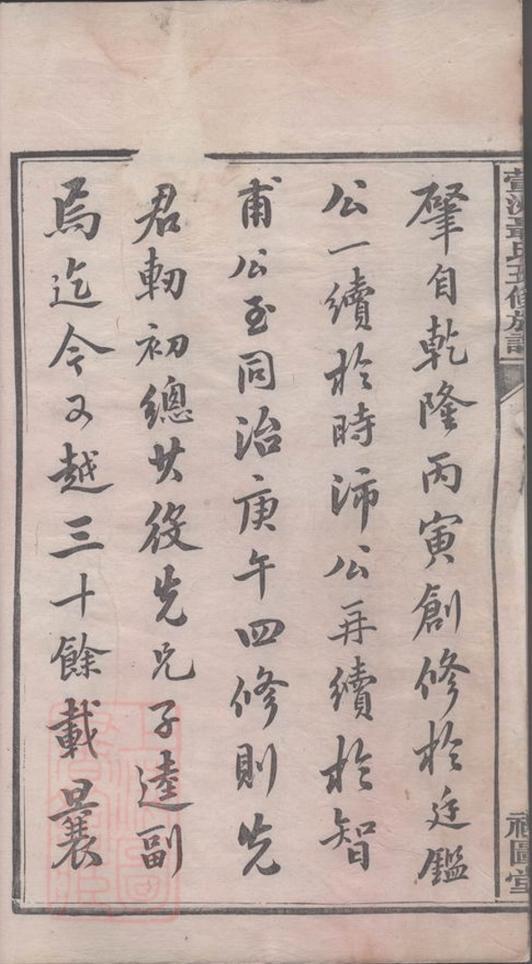 肇自乾隆丙寅創修於廷鑑
公一續於時沛公再續於智
甫公至同治庚午四修則先
君軔初總其役先兄子逵副
焉迄今又越三十餘載曩
氏五修族譜
祠圖堂